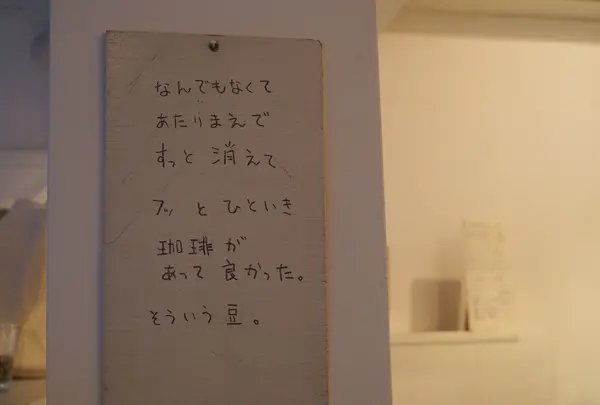 なんでもなくて
あたりまえで
すっと 消えて
フッ と ひといき
珈琲が
あって 良かった。
そういう 豆。